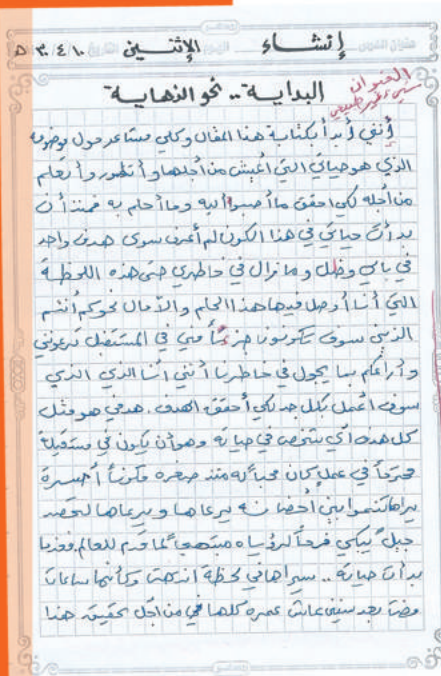 عنوان الدرس إنشاء اليوم الإثنين التاريخ ١٠ / ٤ / ٣٠ هـ
العنوان
شيء غير طبيعي
البداية.. نحو النهاية
أنني أبدأ بكتابة هذا المقال وكلي مشاعر حول موضوعه
الذي هو حياتي التي أعيش من أجلها وأتطور وأتعلم
من أجله لكي احقق ما أصبوا اليه وما أحلم به فمنذ أن
بدأت حياتي في هذا الكون لم أعرف سوى هدف واحد
في بالي وظل وما زال في خاطري حتى هذه اللحظة
التي أنا أوصل فيها هذا الحلم والآمال نحوكم أنتم
الذين سوف تكونون جزءاً مني في المستقبل ترعوني
وأراعكم بما يجول في خاطرنا أنني انا الذي الذي
سوف اعمل بكل جد لكي أحقق الهدف. هدفي هو مثل
كل هدف أي شخص في حياته وهو أن يكون في مستقبله
محترماً في عمل كان محباً له منذ صغره مكوناً أسرة
يراها تنموا بين أحضانه يرعاها ويرعاها لتحصد
جيل يبكي فرحاً لرؤياه مبتهجاً لما قدم للعالم فعندما
بدأت حياته.. سيراها في لحظة انتهت وكأنها ساعات
مضت بعد سنين عاش عمره كلها في من أجل تحقيق هذا